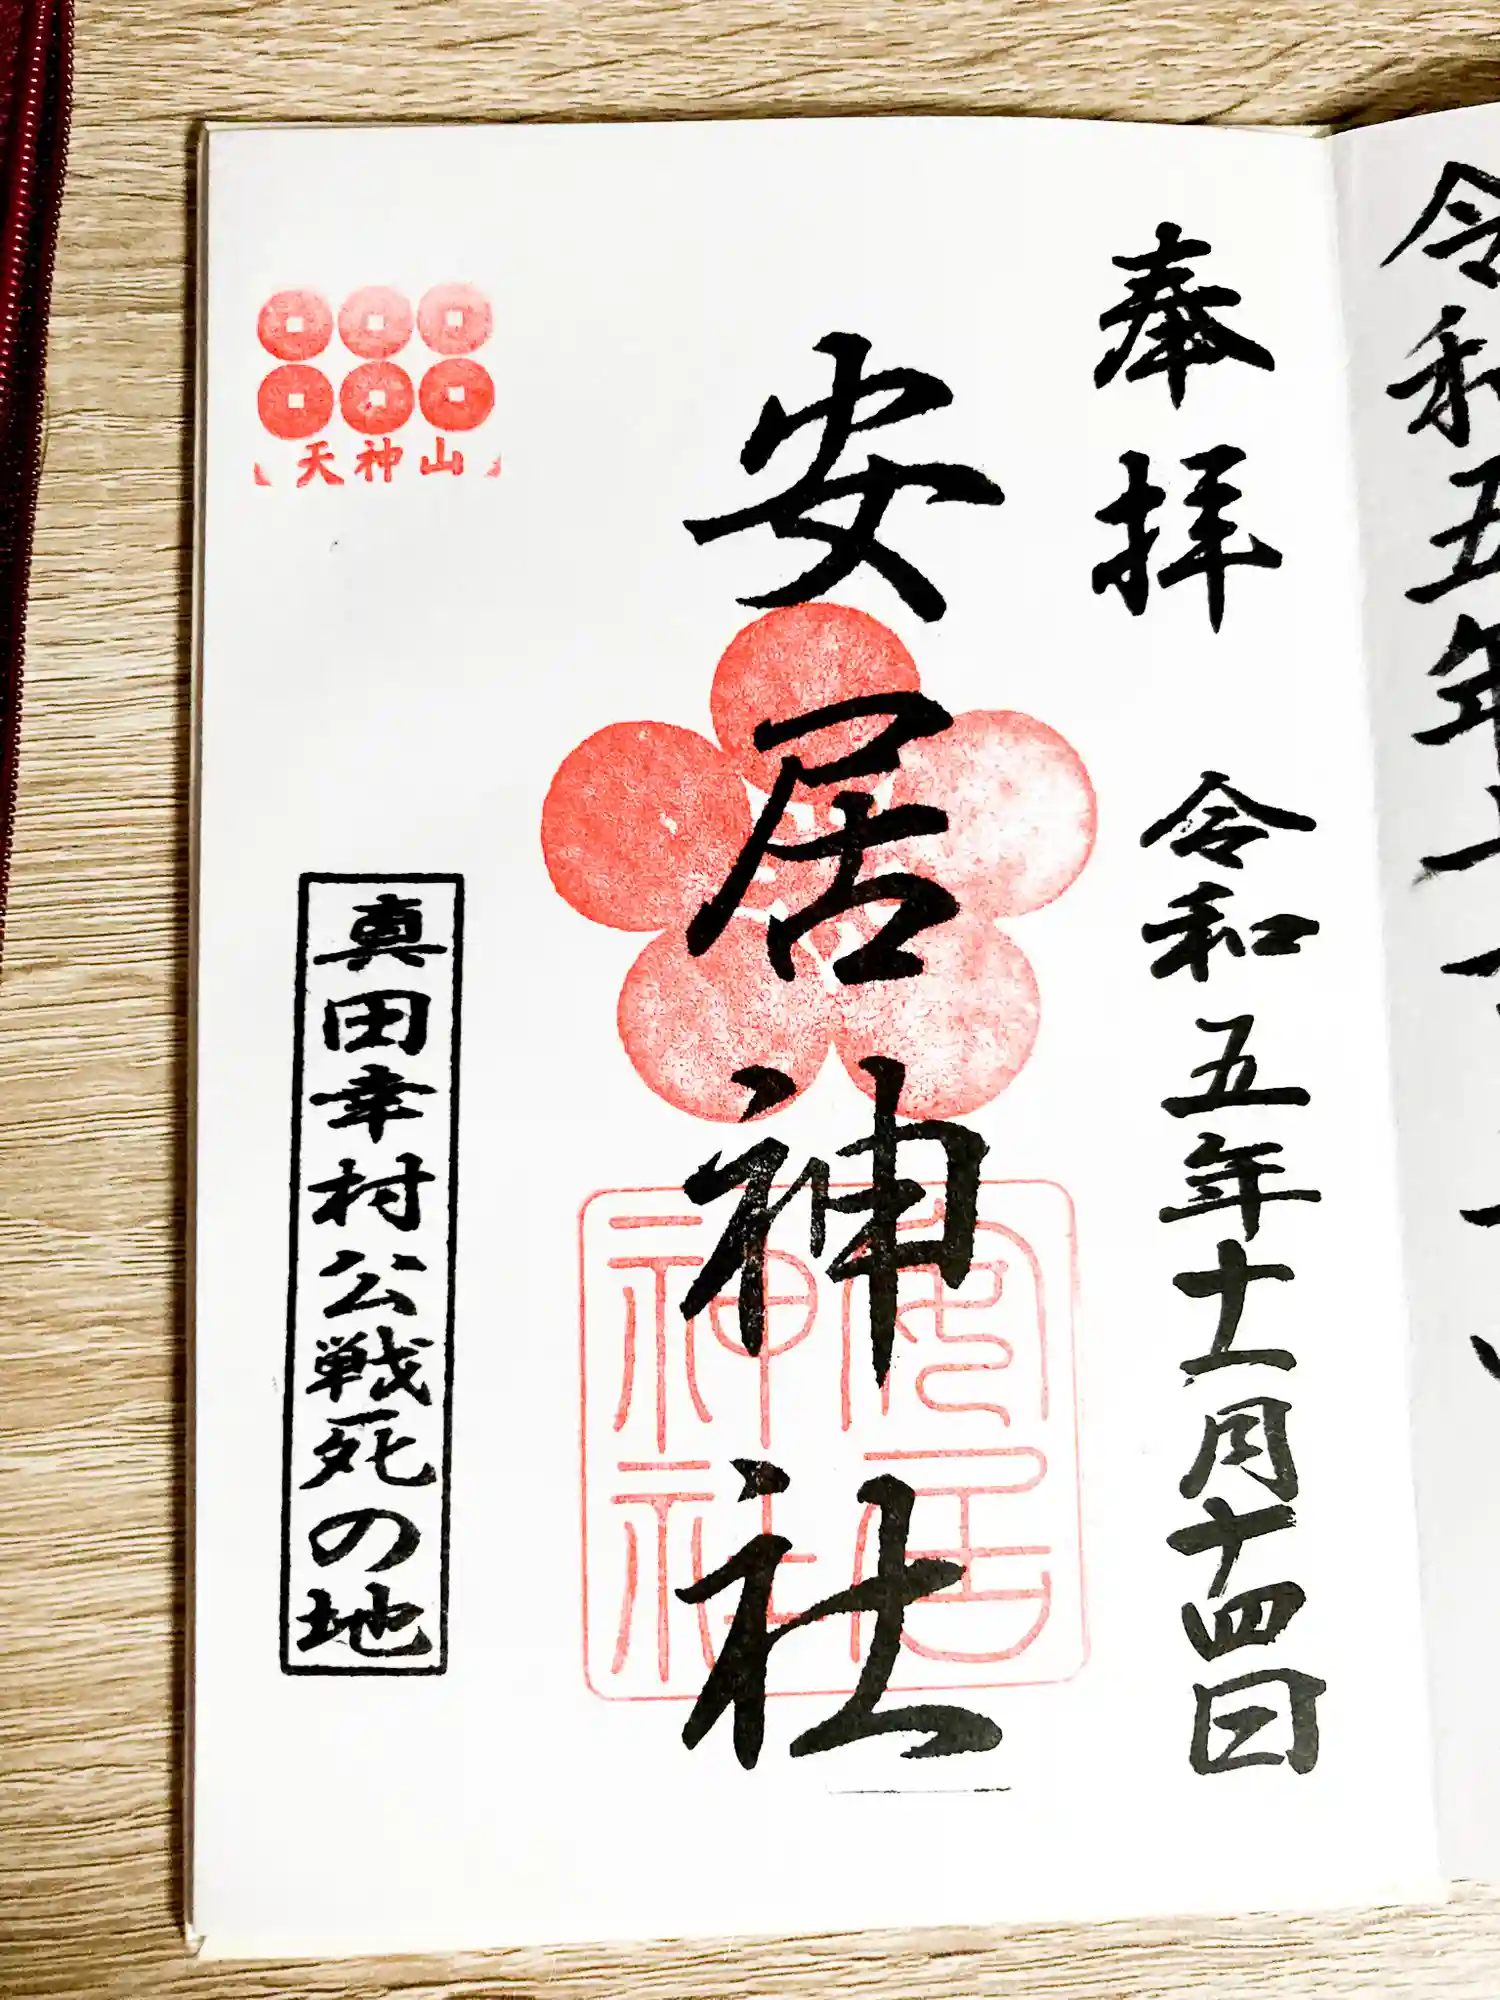 令和五年十
奉拝 令和五年十一月十四日
安居神社
安居神社
天神山
真田幸村公戦死の地